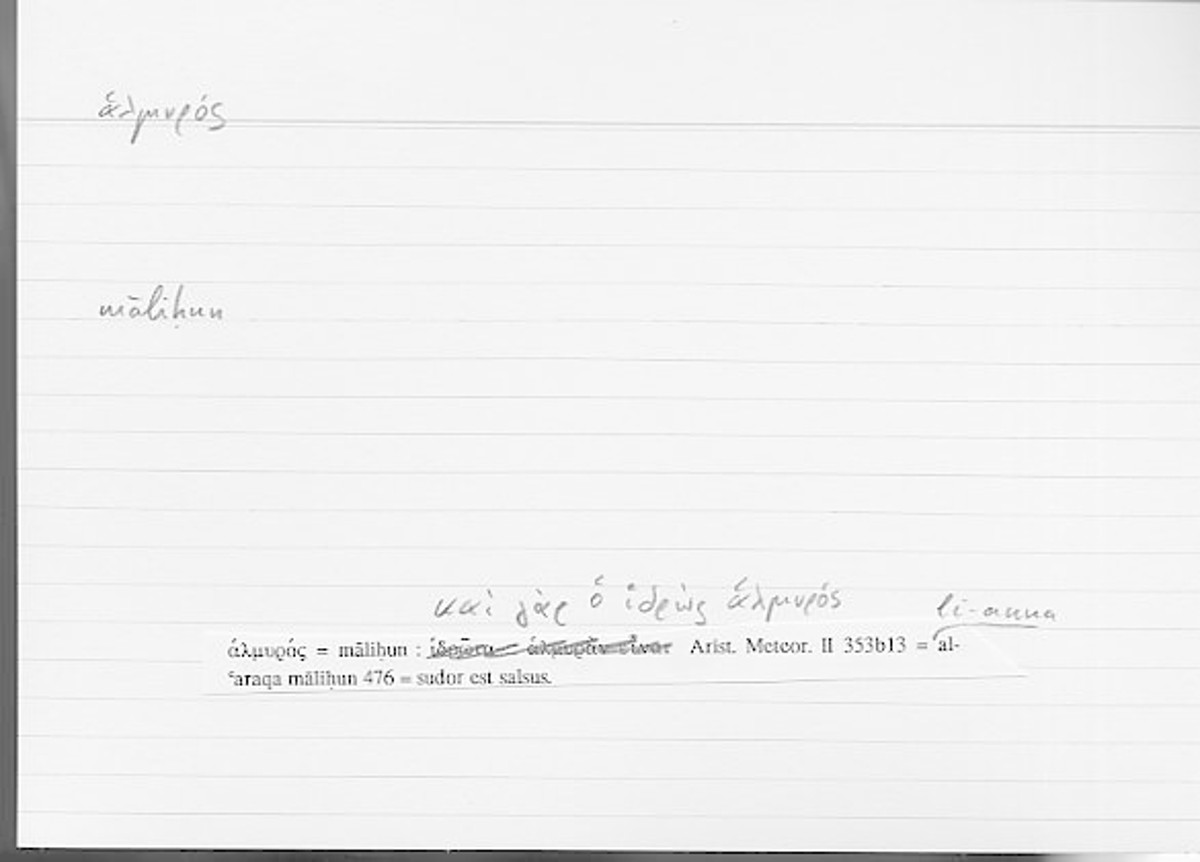 ἁλμυρός
māliḥun
καὶ γὰρ ὁ ἱδρὼς ἁλμυρός li-anna
ἁλμυρός = māliḥun : ἱδρῶτα ἁλμυρὸν εἶναι Arist. Meteor. II 353b13 = al-
ʿaraqa māliḥun 476 = sudor est salsus.